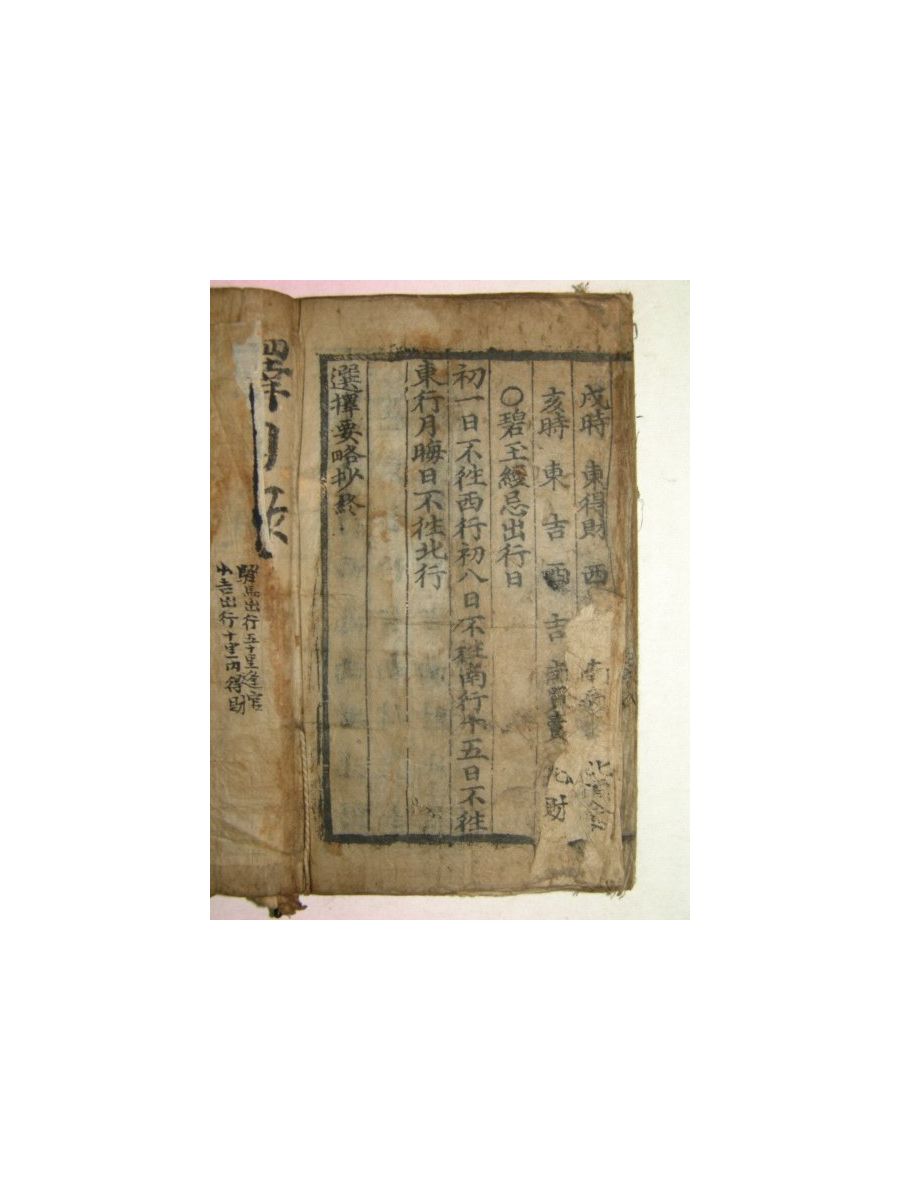 戌時 東得財 西 南 北
亥時 東吉 西吉 南 財
〇碧玉經忌出行日
初一日不徃西行初八日不徃南行十五日不徃
東行月晦日不徃北行
選擇要略抄終
擇日
驛馬出行五十里逢官
小吉出行十里內得財